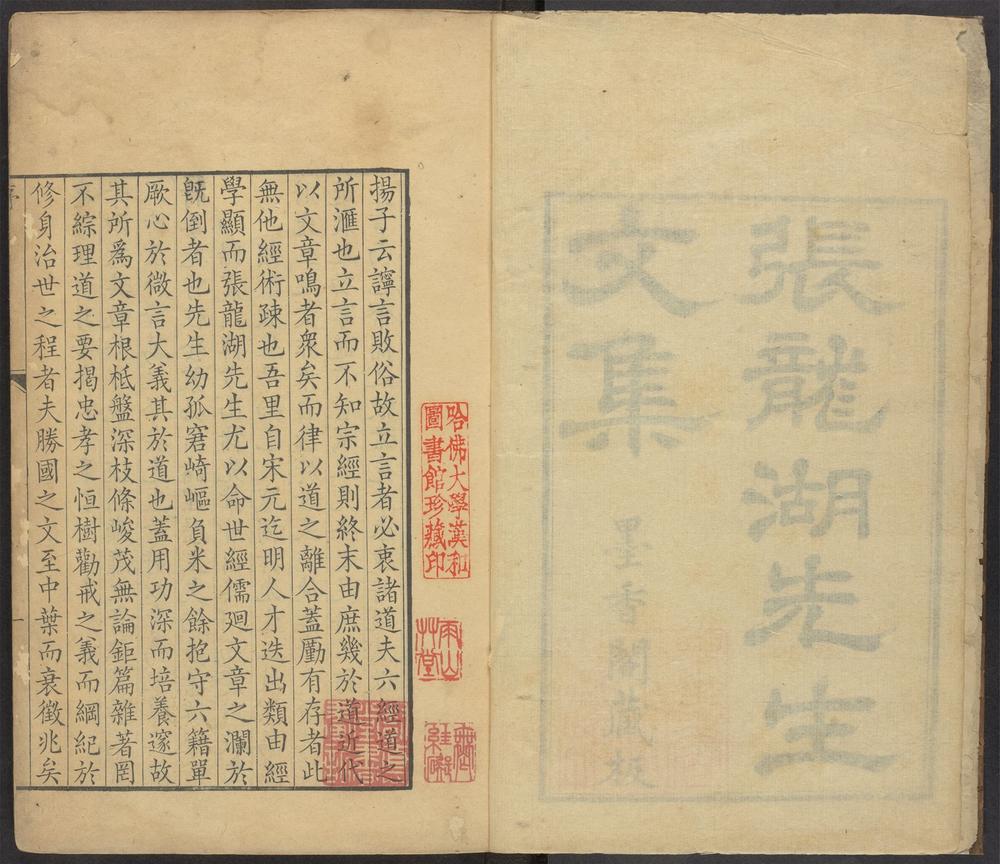 張龍湖先生
文集
墨香閣藏板
哈佛大學漢和
圖書館珍藏印
雨山
草堂
揚子云謣言敗俗故立言者必衷諸道夫六經道之
所滙也立言而不知宗經則終末由庶幾於道近代
以文章鳴者衆矣而律以道之離合蓋劚有存者此
無他經術疎也吾里自宋元迄明人才迭出類由經
學顯而張龍湖先生尤以命世經儒廻文章之瀾於
旣倒者也先生幼孤窘崎嶇負米之餘抱守六籍單
厥心於微言大義其於道也蓋用功深而培養邃故
其所爲文章根柢盤深枝條峻茂無論鉅篇雜著罔
不綜理道之要揭忠孝之恒樹勸戒之義而綱紀於
修身治世之程者夫勝國之文至中葉而衰徵兆矣
序